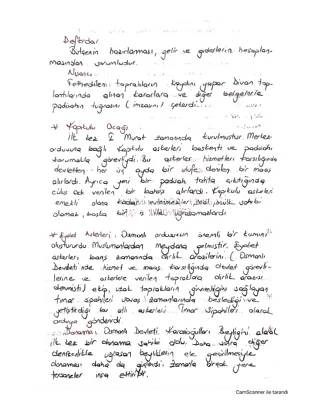 Defterdar
Bütçenin hazırlanması, gelir ve giderlerin hesaplan-
masından sorumludur.
Nişancı
Fethedilen toprakların kaydını yapar Divan top-
lantılarında alınan kararlara ve diğer belgelerle
padişahın tuğrasını (imzasını) çekerdi.
* Kapıkulu Ocağı
İlk kez I. Murat zamanında kurulmuştur. Merkez
ordusuna bağlı Kapıkulu askerleri başkenti ve padişahı
korumakla görevliydi. Bu askerler hizmetleri karşılığında
devletten her üç ayda bir ulufe denilen bir maaş
alırlardı. Ayrıca yeni bir padişah tahta çıktığında
cülus adı verilen bir bahşiş alırlardı. Kapıkulu askerleri
emekli olana kadar evlenemezler, mülk sahibi
olamaz, başka bir iş yapamazlardı
* Eyalet Askerleri: Osmanlı ordusunun önemli bir kısmını
oluştururdu Müslümanlardan meydana gelmiştir. Eyalet
askerleri, barış zamanında dirlik arazilerini. (Osmanlı
Devleti'nde hizmet ve maaş karşılığında devlet görevli-
lerine ve askerlere verilen topraklara dirlik arazisi
denmiştir) ekip, uzak toprakların güvenliğini sağlayan
tımar sipahileri savaş zamanlarında beslediği ve
yetiştirdiği atlı askerleri Tımar sipahileri olarak
orduya gönderirdi
Donanma: Osmanlı Devleti Karesioğulları Beyliğini alarak
ilk kez bir donanma sahibi oldu. Daha sonra diğer
denizcilikle uğraşan beyliklerin ele geçirilmesiyle
donanması daha da güçlendi. Zamanla birçok yere
tersaneler inşa ettirildi.
CamScanner ile tarandı